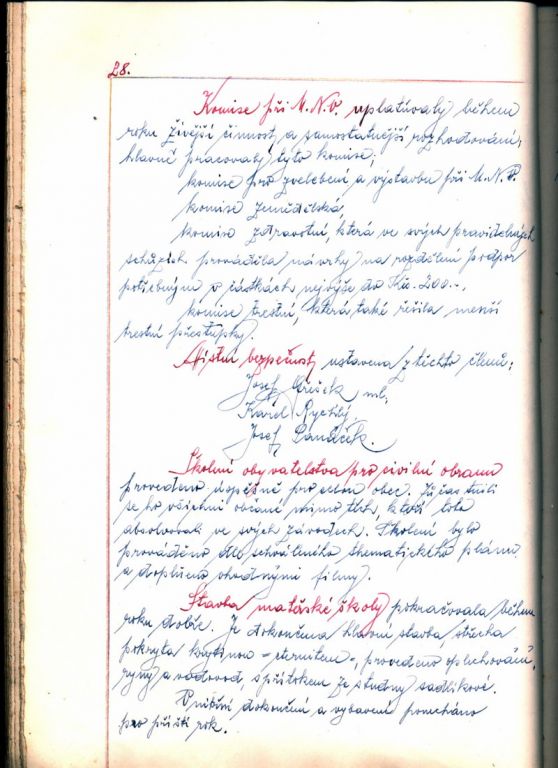 28.
Komise při M.N.V. uplatňovaly během
roku živější činnost a samostatnější rozhodování,
hlavně pracovaly tyto komise:
komise pro zvelebení a výstavbu při M.N.V.
komise zemědělská,
komise zdravotní, která ve svých pravidelných
schůzích prováděla návrhy na rozdělení podpor
potřebným v částkách nejvýše do Kčs. 200.-,
komise trestní, která také řešila menší
trestní přestupky.
Místní bezpečnost ustavena z těchto členů:
Josef Křeček ml,
Karel Rychlý,
Josef Panáček.
Školení obyvatelstva pro civilní obranu
provedeno úspěšně pro celou obec. Zúčastnili
se ho všichni občané mimo těch, kteří toto
absolvovali ve svých závodech. Školení bylo
prováděno dle schváleného thematického plánu
a doplněno vhodnými filmy.
Stavba mateřské školy pokračovala během
roku dobře. Je dokončena hlavní stavba, střecha
pokryta krytinou - eternitem -, provedeno oplechování,
rýny a vodovod, s přítokem ze studny sadlíkové.
Vnitřní dokončení a vybavení ponecháno
pro příští rok.